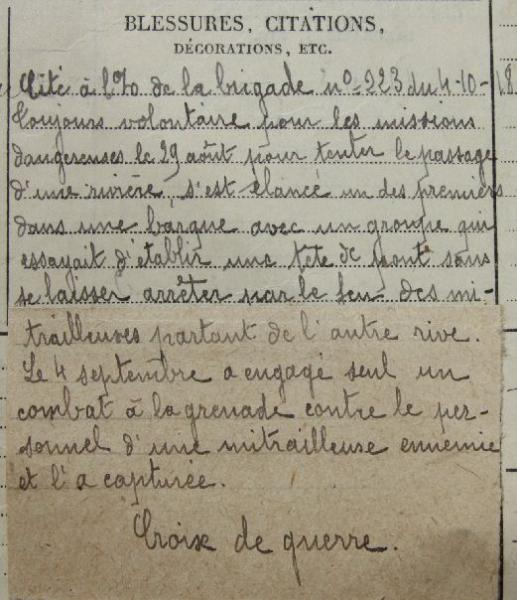 BLESSURES, CITATIONS,
DÉCORATIONS, ETC.
Cité à l'O/o de la brigade n° 223 du 4-10-18
Toujours volontaire pour les missions
dangereuses le 29 août pour tenter le passage
d'une rivière, s'est élancé un des premiers
dans une barque avec un groupe qui
essayait d'établir une tête de pont sans
se laisser arrêter par le feu des mi-
trailleuses partant de l'autre rive.
Le 4 septembre a engagé seul un
combat à la grenade contre le per-
sonnel d'une mitrailleuse ennemie
et l'a capturée.
Croix de guerre.